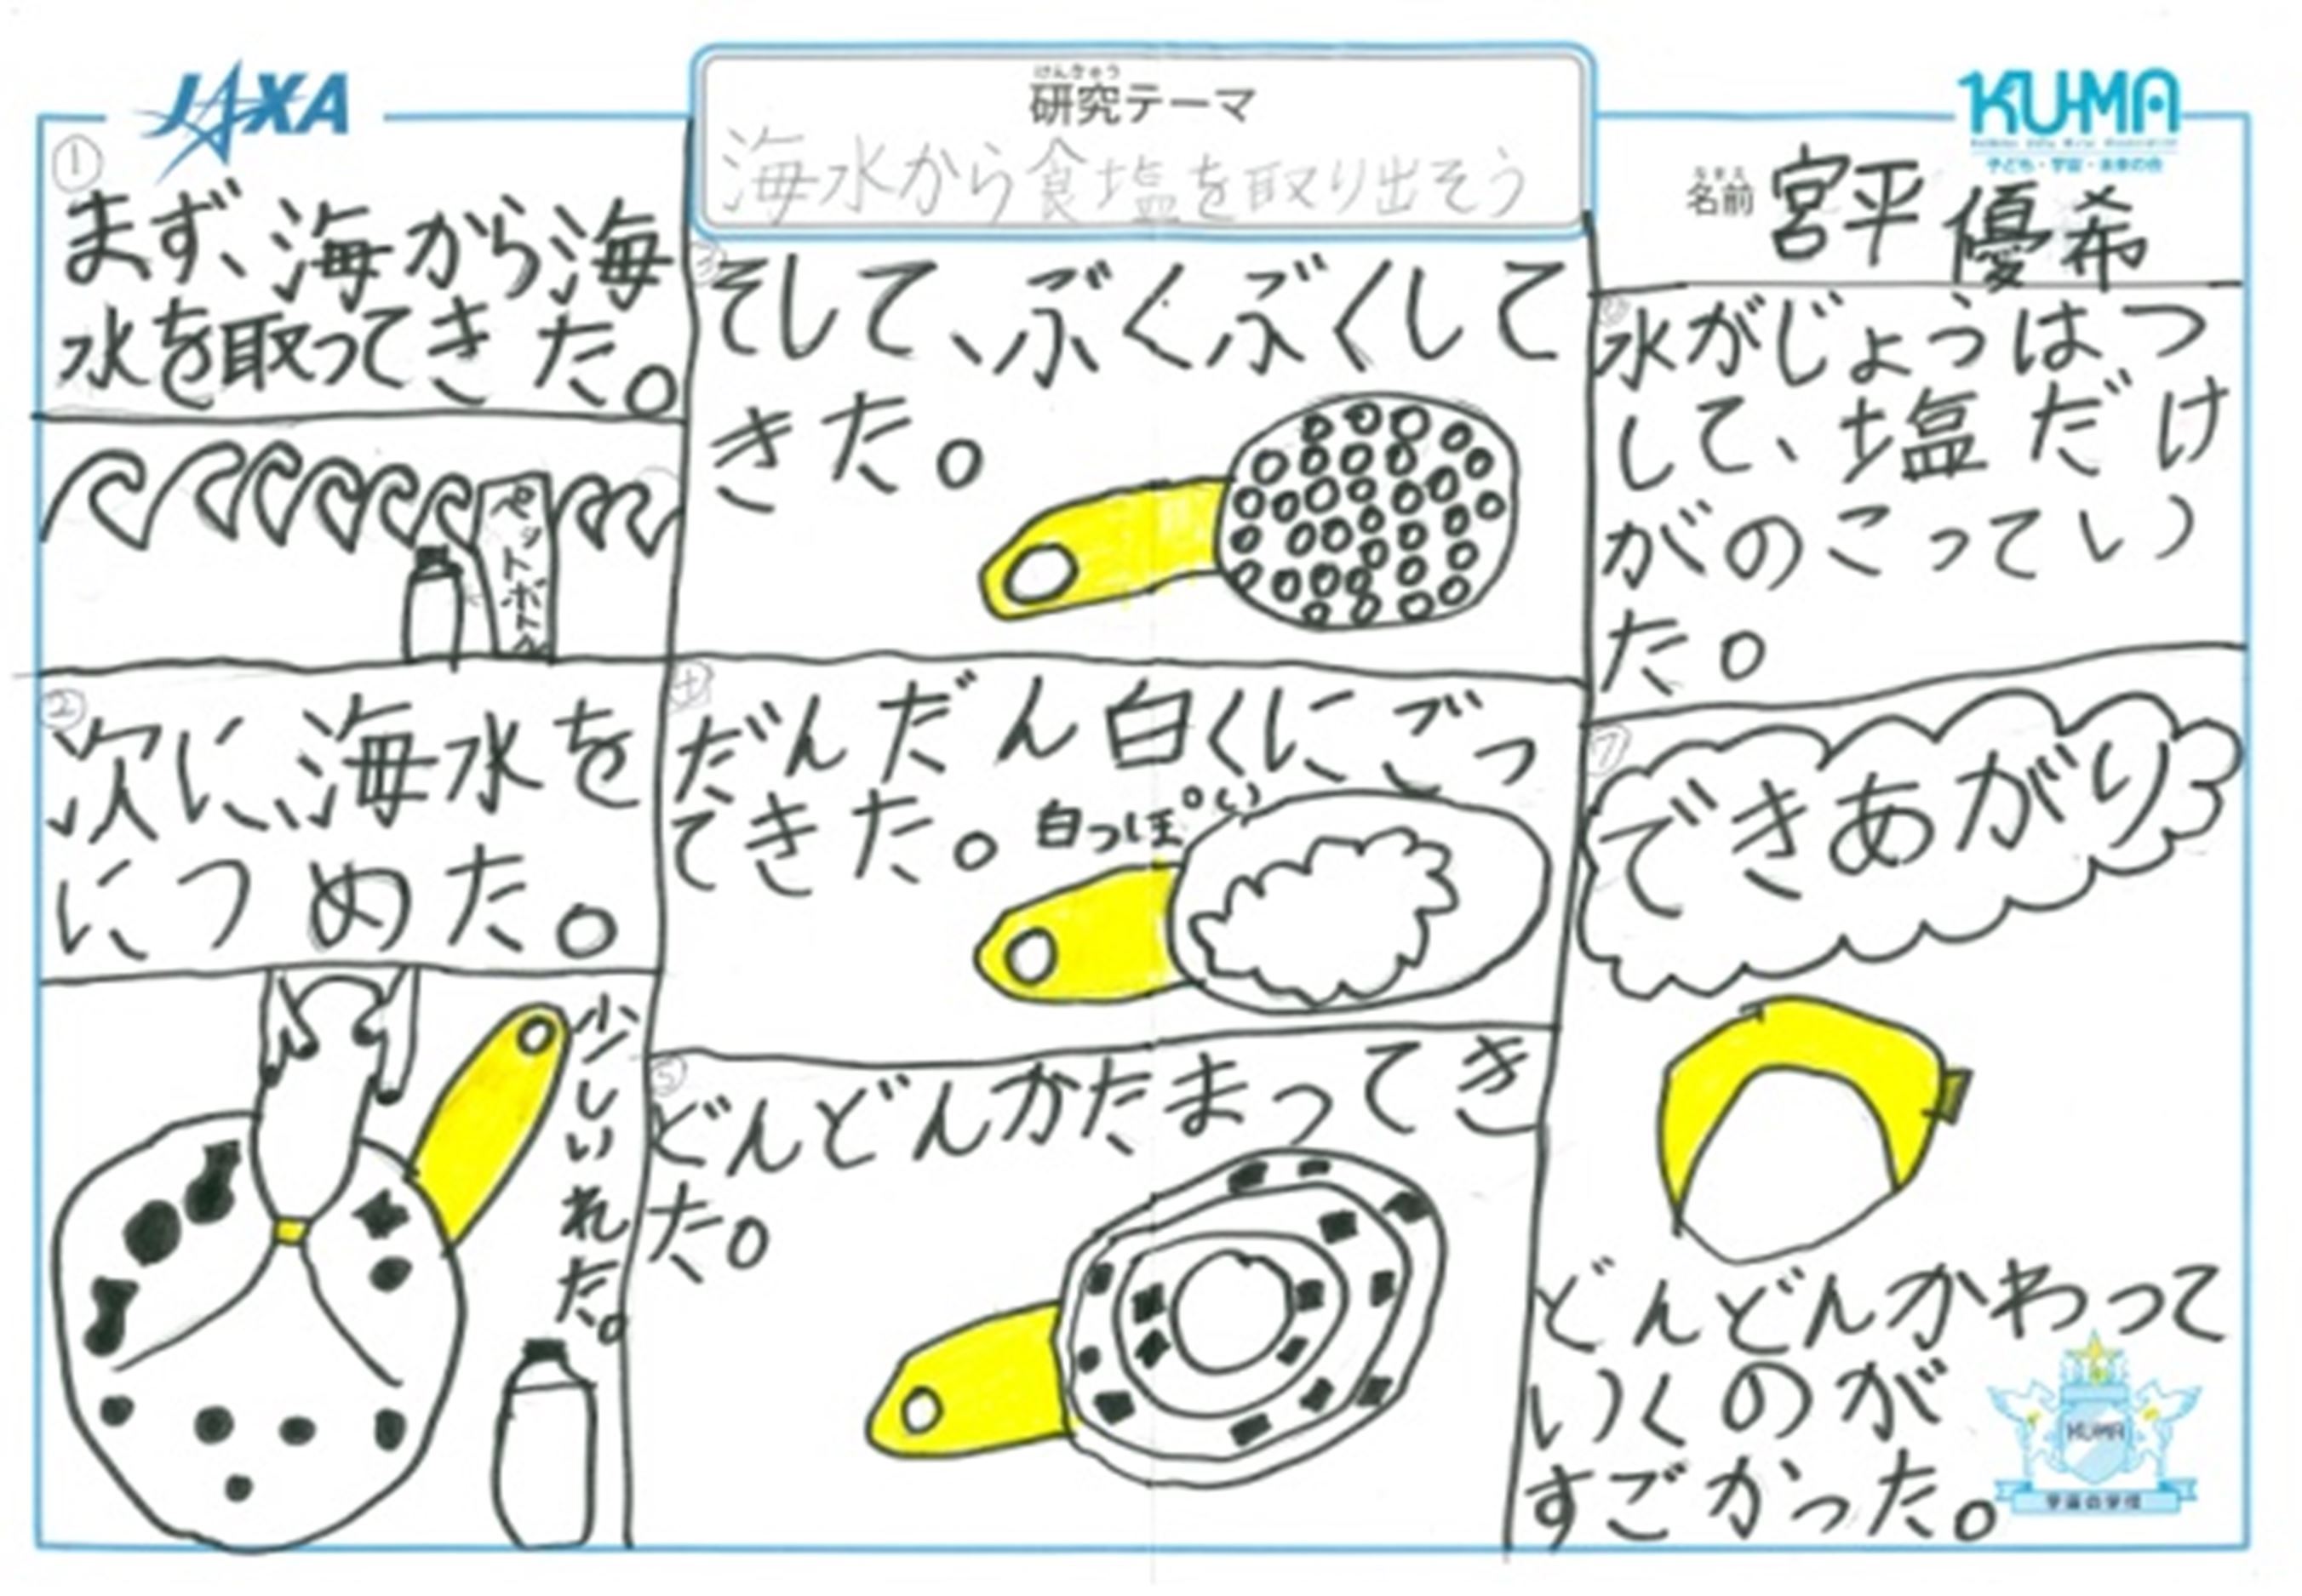 JAXA
けんきゅう
研究テーマ
海水から食塩を取り出そう
KUMA
子ども・宇宙・未来の会
なまえ
名前 宮平 優希
①
まず、海から海
水を取ってきた。
ペットボトル
②
次に、海水を
につめた。
少しいれた。
③
そして、ぶくぶくして
きた。
④
だんだん白くにごっ
てきた。
白っぽい
⑤
どんどんかたまってき
た。
⑥
水がじょうはつ
して、塩だけ
がのこってい
た。
⑦
できあがり
どんどんかわって
いくのが
すごかった。
KUMA
宇宙の学校